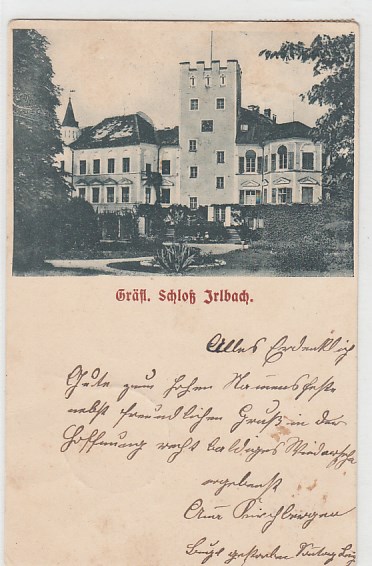 Gräfl. Schloß Irlbach.
Alles Erdenklich
Gute zum hohen Namensfeste
nebst freundlichen Gruß in der
Hoffnung recht baldiges Wiederseh
ergebenst